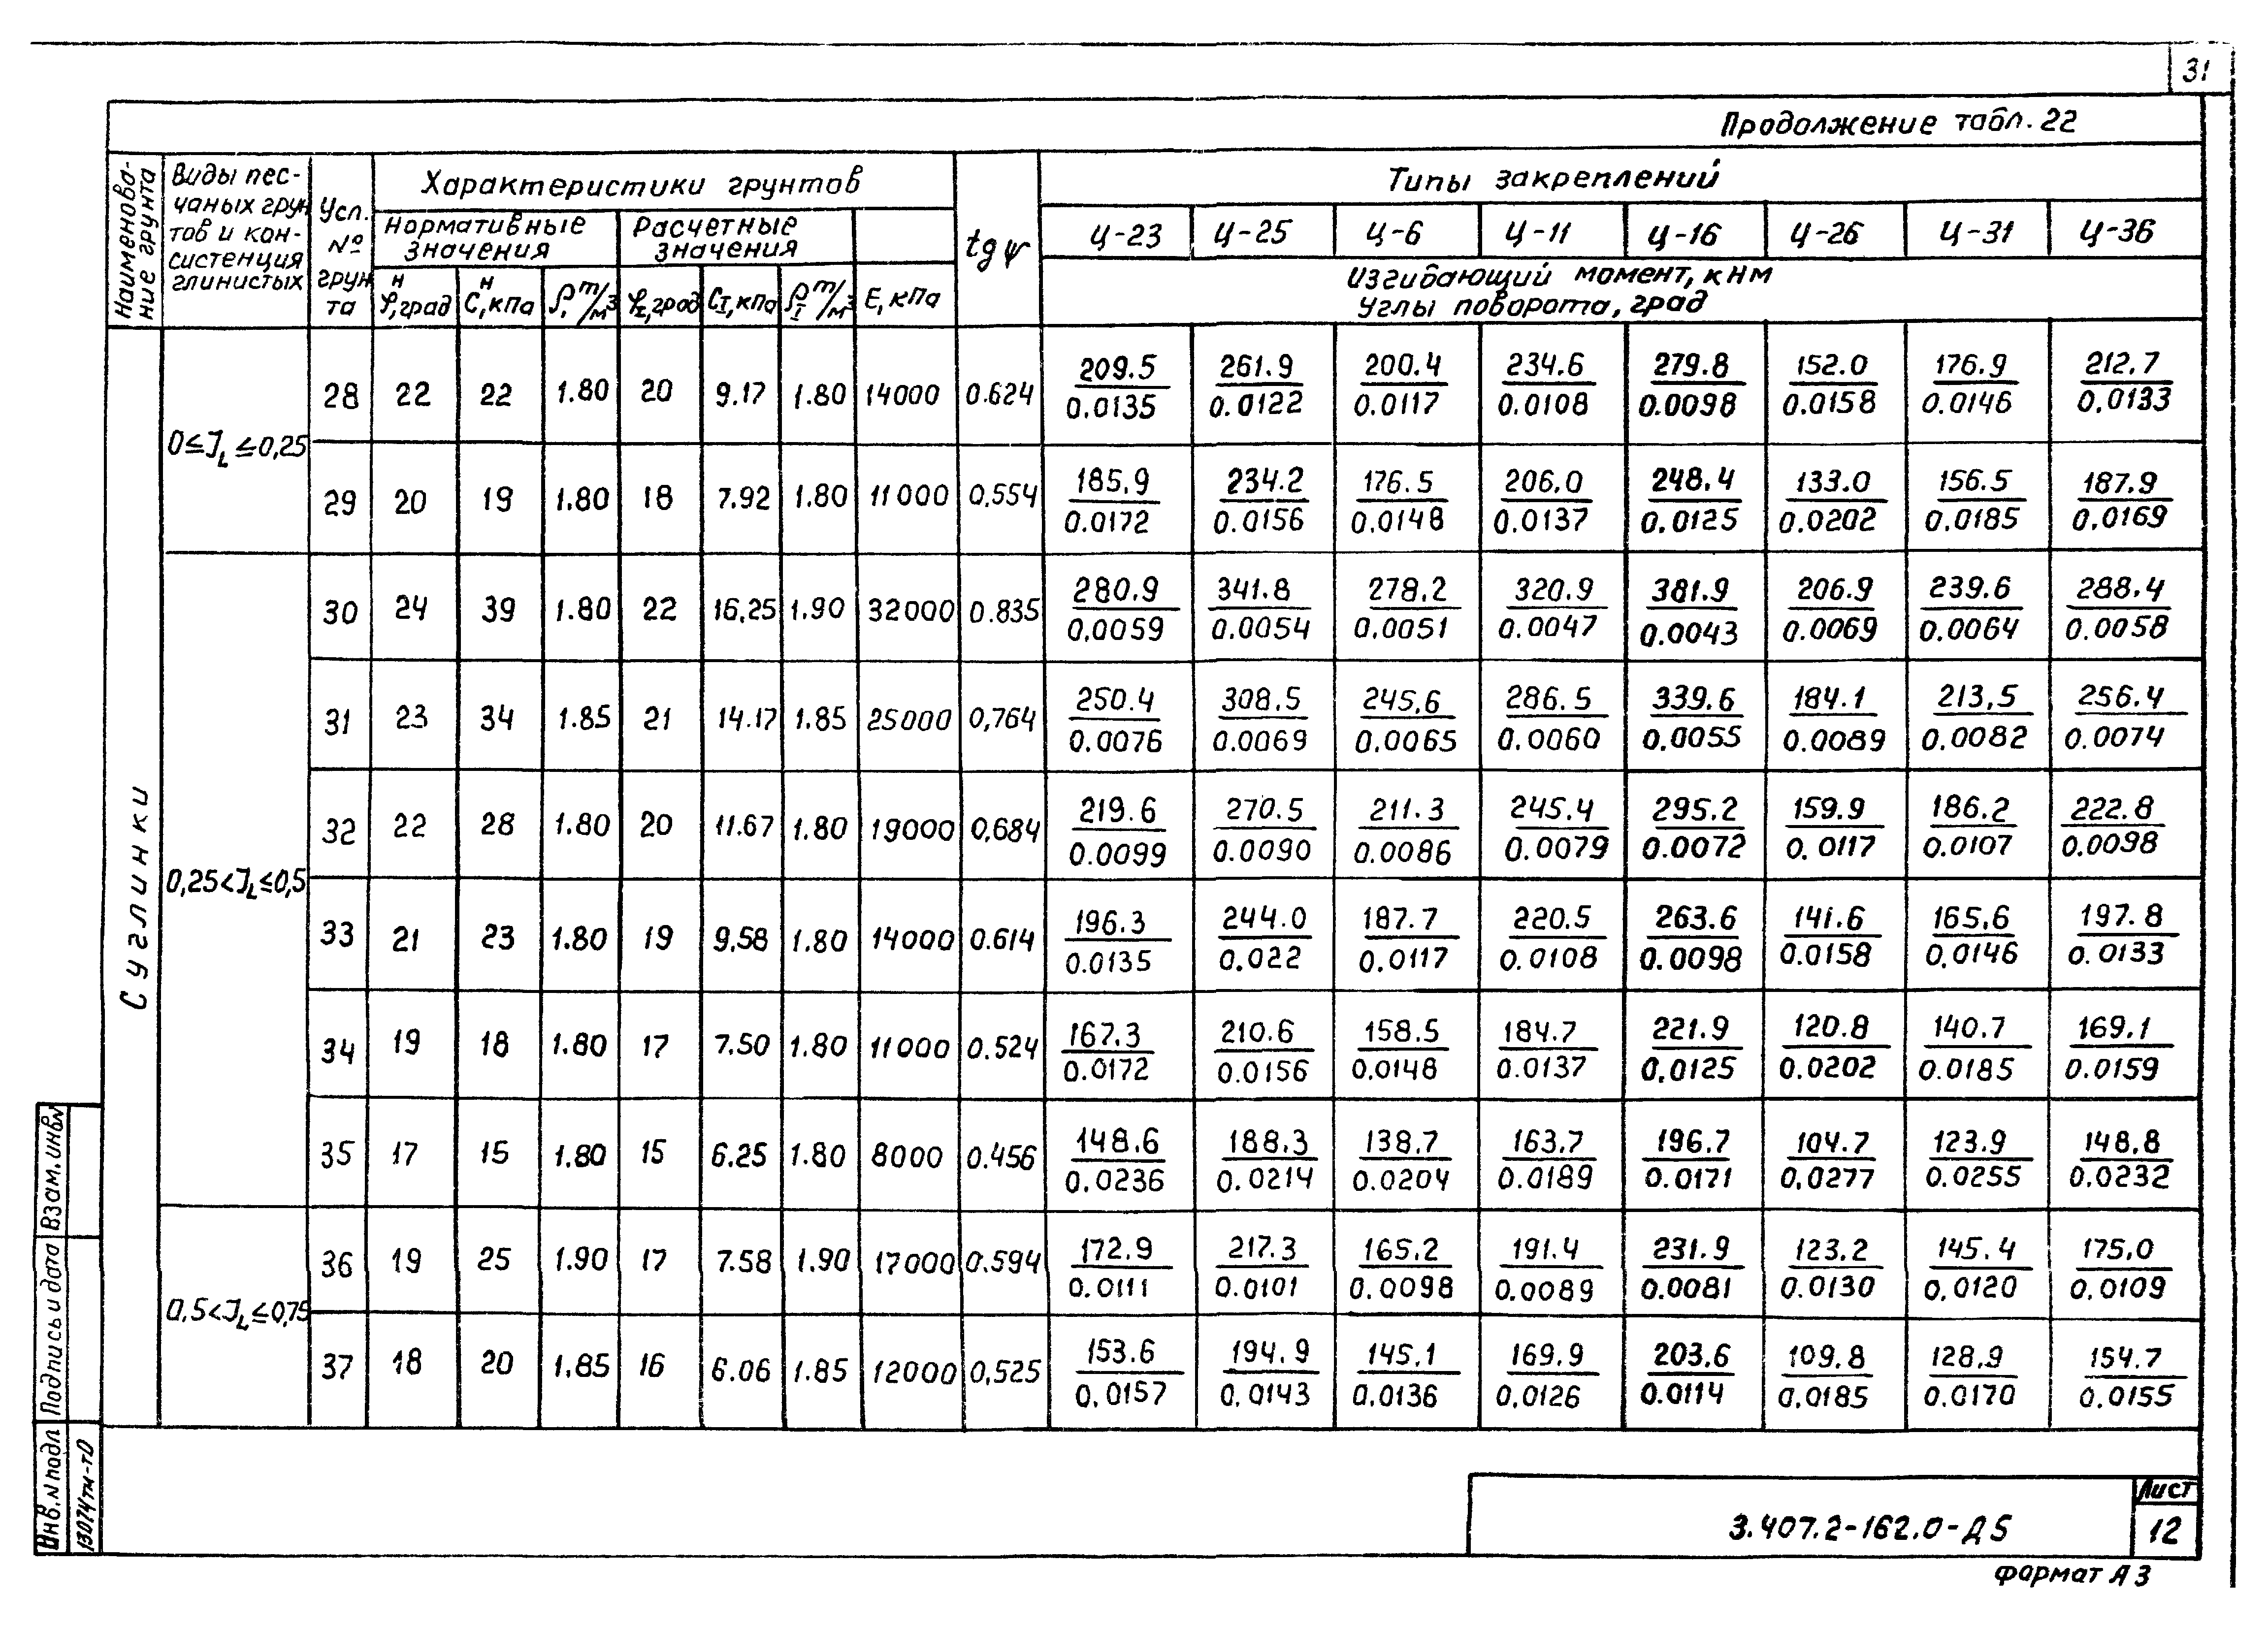 31
Продолжение табл. 22
Наименова-
ние грунта
Виды пес-
чаных грун
тов и кон-
систенция
глинистых
Усл.
№
грун
та
Характеристики грунтов
Нормативные
значения
Расчетные
значения
φ,ᴴ град
C,ᴴ кПа
ρ, т/м³
φI, град
CI, кПа
ρI т/м³
E, кПа
tg ψ
Типы закреплений
Ц-23 Ц-25 Ц-6 Ц-11 Ц-16 Ц-26 Ц-31 Ц-36
Изгибающий момент, кНм
Углы поворота, град
Суглинки
0≤JL≤0,25
28 22 22 1.80 20 9.17 1.80 14000 0.624
209.5 261.9 200.4 234.6 279.8 152.0 176.9 212.7
0.0135 0.0122 0.0117 0.0108 0.0098 0.0158 0.0146 0.0133
29 20 19 1.80 18 7.92 1.80 11000 0.554
185.9 234.2 176.5 206.0 248.4 133.0 156.5 187.9
0.0172 0.0156 0.0148 0.0137 0.0125 0.0202 0.0185 0.0169
0,25<JL≤0,5
30 24 39 1.80 22 16.25 1.90 32000 0.835
280.9 341.8 278.2 320.9 381.9 206.9 239.6 288.4
0.0059 0.0054 0.0051 0.0047 0.0043 0.0069 0.0064 0.0058
31 23 34 1.85 21 14.17 1.85 25000 0,764
250.4 308.5 245.6 286.5 339.6 184.1 213,5 256.4
0.0076 0.0069 0.0065 0.0060 0.0055 0.0089 0.0082 0.0074
32 22 28 1.80 20 11.67 1.80 19000 0.684
219.6 270.5 211.3 245.4 295.2 159.9 186.2 222.8
0.0099 0.0090 0.0086 0.0079 0.0072 0.0117 0.0107 0.0098
33 21 23 1.80 19 9.58 1.80 14000 0.614
196.3 244.0 187.7 220.5 263.6 141.6 165.6 197.8
0.0135 0.022 0.0117 0.0108 0.0098 0.0158 0.0146 0.0133
34 19 18 1.80 17 7.50 1.80 11000 0.524
167.3 210.6 158.5 184.7 221.9 120.8 140.7 169.1
0.0172 0.0156 0.0148 0.0137 0.0125 0.0202 0.0185 0.0159
35 17 15 1.80 15 6.25 1.80 8000 0.456
148.6 188.3 138.7 163.7 196.7 104.7 123.9 148.8
0.0236 0.0214 0.0204 0.0189 0.0171 0.0277 0.0255 0.0232
0,5<JL≤0,75
36 19 25 1.90 17 7.58 1.90 17000 0.594
172.9 217.3 165.2 191.4 231.9 123.2 145.4 175.0
0.0111 0.0101 0.0098 0.0089 0.0081 0.0130 0.0120 0.0109
37 18 20 1.85 16 6.06 1.85 12000 0,525
153.6 194.9 145.1 169.9 203.6 109.8 128.9 154.7
0.0157 0.0143 0.0136 0.0126 0.0114 0.0185 0.0170 0.0155
Взам. инв. N
Подпись и дата
Инв. N подл
13074тм-т0
3.407.2-162.0-Д5
Лист
12
формат А3